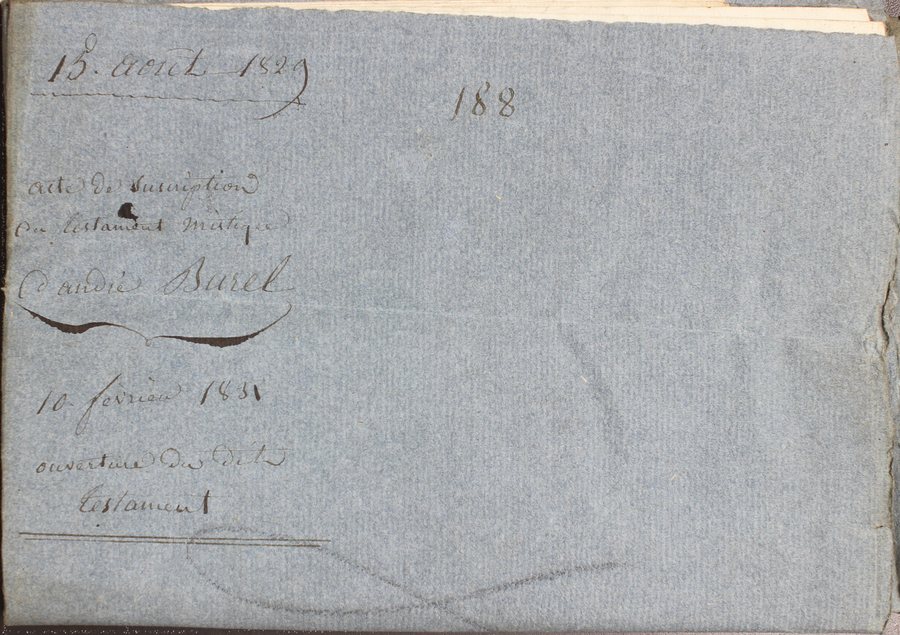 15. août 1829
188
acte de suscription
du testament mistique
d'andré Burel
10 fevrier 1831
ouverture du dit
testament